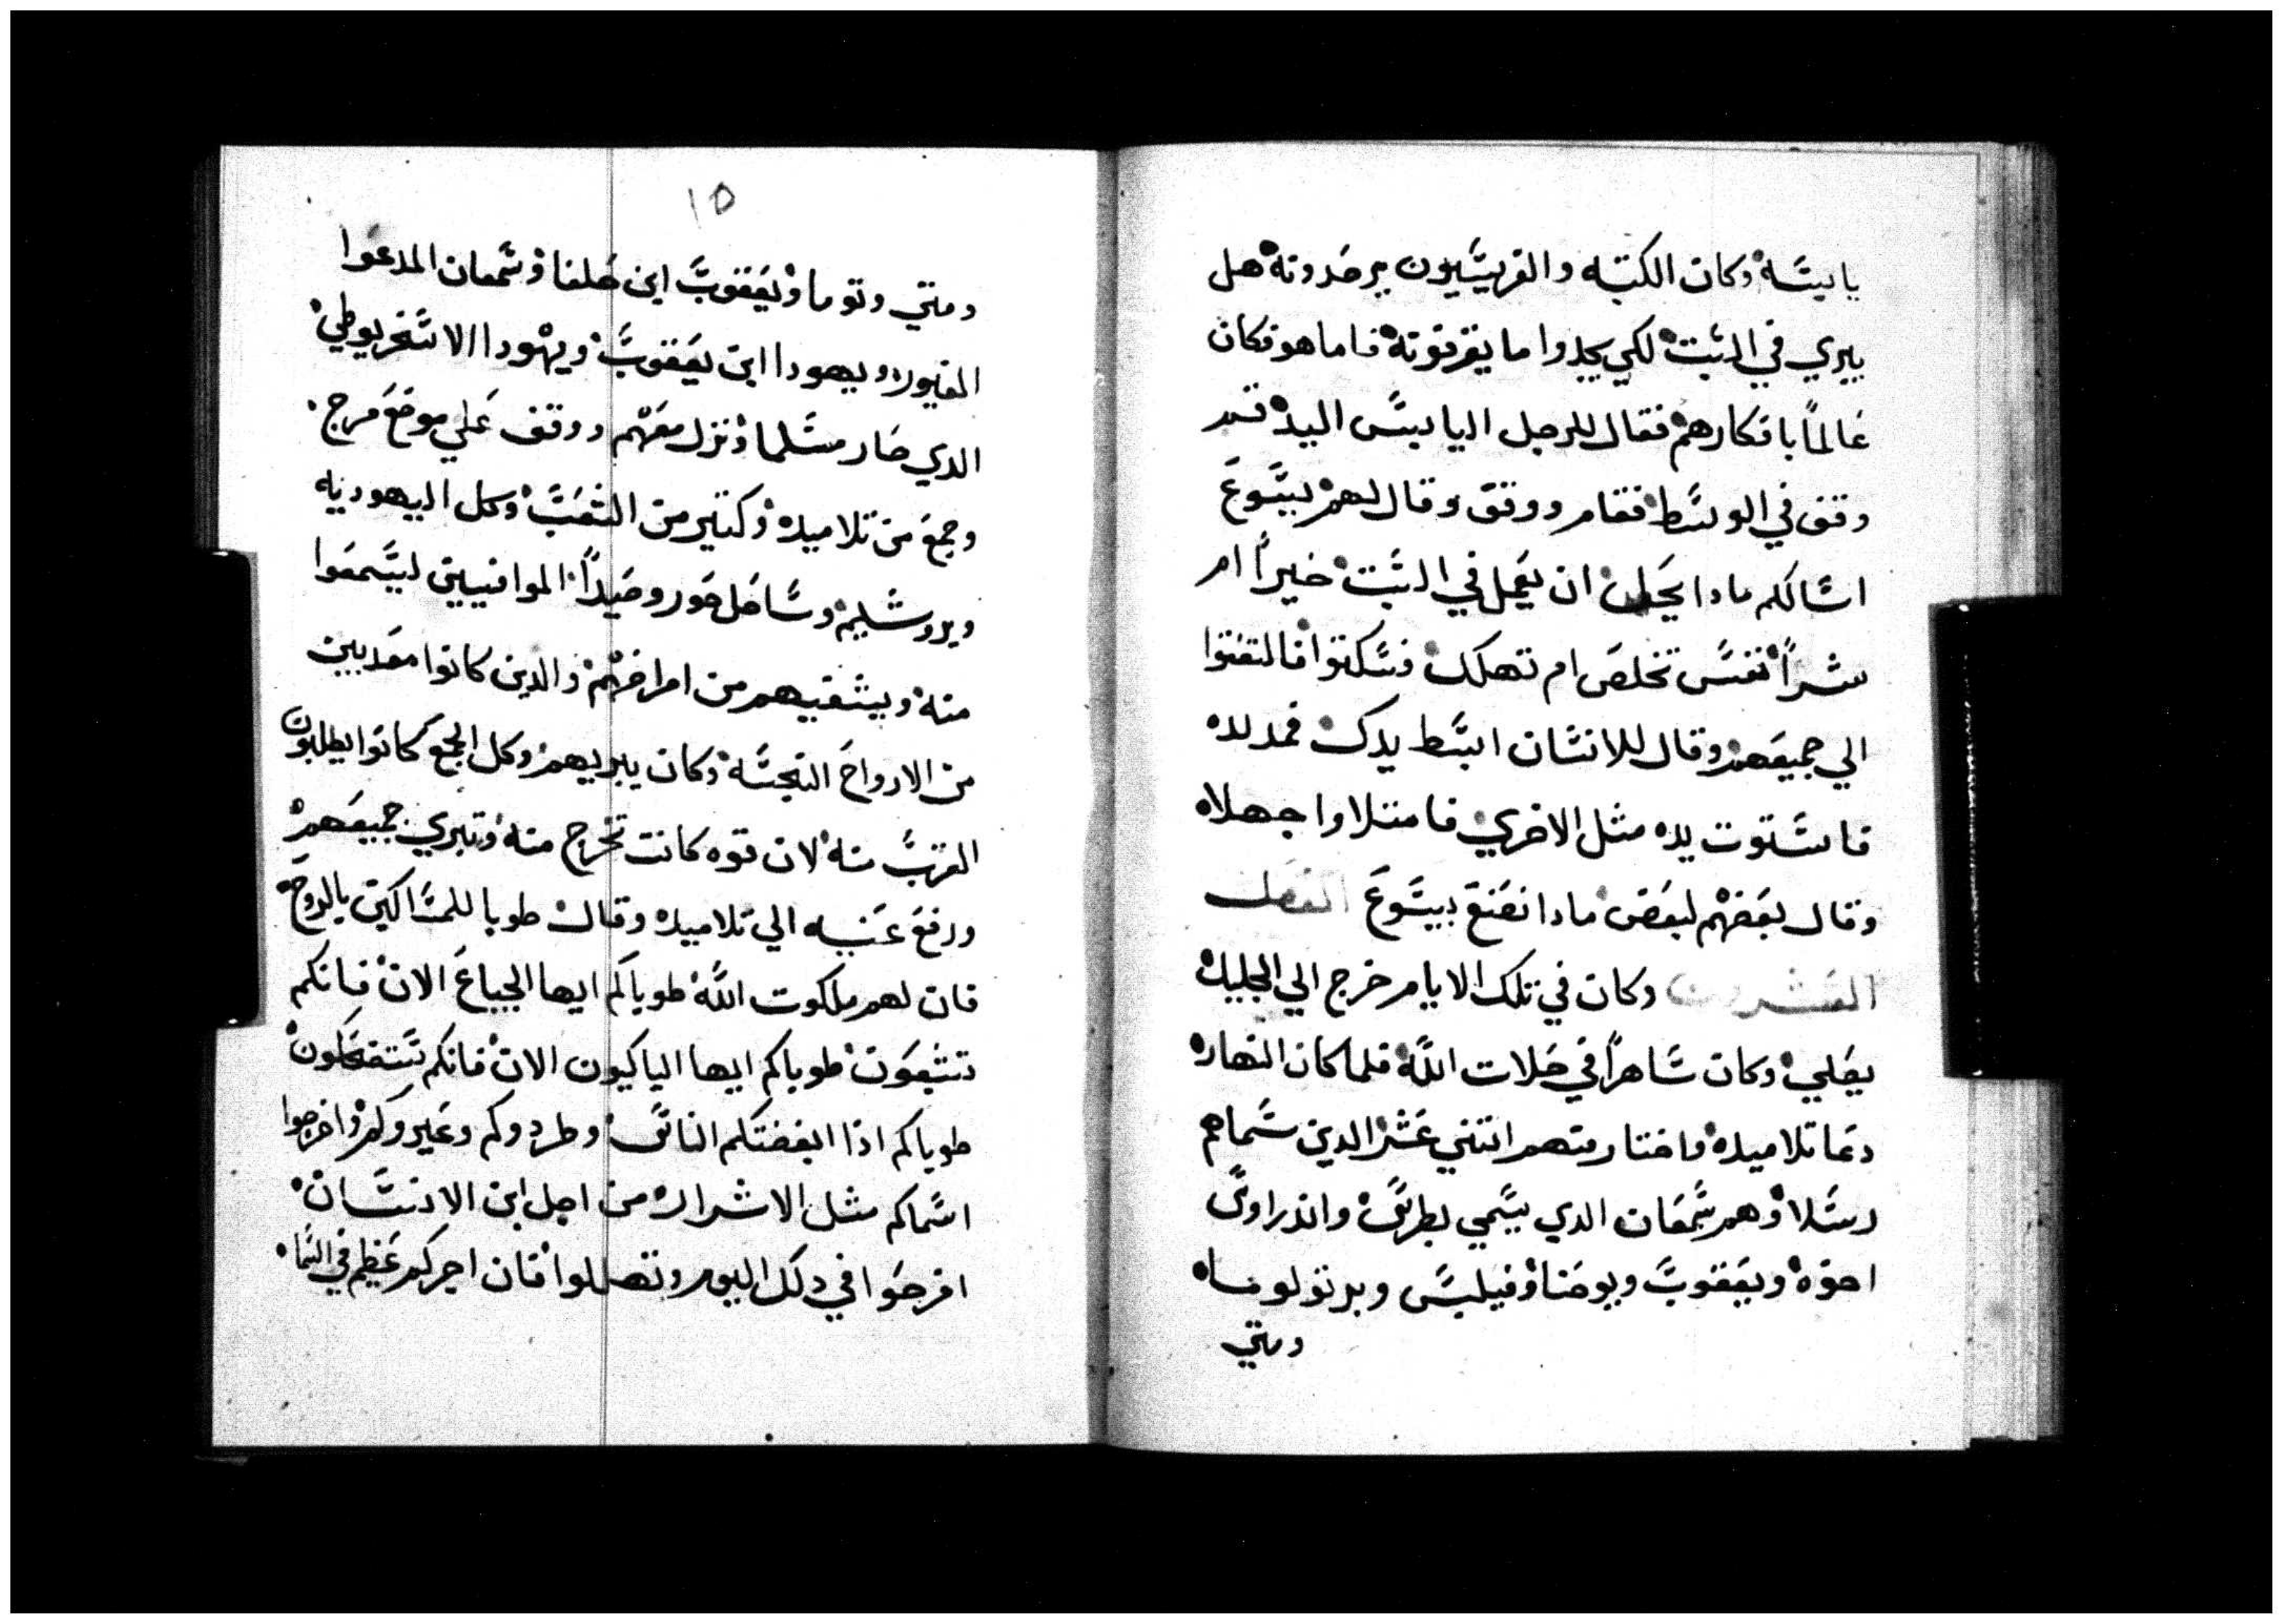 يابيسَه وكان الكتبه والفريسَيون يرصَدونه هل
يبري في السَبت لكي يجدوا ما يقرفوته فاما هو فكان
عَالماً بافكارهم فقال للرجل اليابسَ اليد قم
وقف في الوسَط فقام ووقف وقال لهم يسَوعَ
اسَالكم مادا يحَل ان يعَمل في السَبت خيراً ام
شراً نفسَ تخلصَ ام تهلك فسَكتوا فالتفتوا
الي جميعَهم وقال للانسَان ابسَط يدك فمد يده
فاسَتوت يده مثل الاخري فامتلاوا جهلاه
وقال بعَضهم لبعَض مادا نصَنعَ بيسَوعَ الفصَل
العَشرون وكان في تلك الايام خرج الي الجليل
يصَلي وكان سَاهراً في صَلات اللّه فلما كان النهار
دعَا تلاميده واختار منهم اتني عَشر الدين سَماهم
رسَلا وهم سَمعَان الدي يسَمي بطرسَ واندراوسَ
اخوه ويعَقوبَ ويوحَنا وفيلبسَ وبرتولوماه
ومتي
١٥
ومتي وتوما ويعَقوبَ ابن حَلفا وسَمعان المدعَوا
الغيور ويهودا ابن يعَقوبَ ويهودا الاسَخريوطي
الدي صَار مسَلما ونزل معَهم ووقف عَلي موضعَ مرج
وجمعَ من تلاميده وكتير من الشعَبَ وكل اليهوديه
ويروشليم وسَاحَل صَور وصَيداً الموافيين ليسَمعَوا
منه ويشفيهم من امراضهم والدين كانوا معَدبين
من الارواحَ النجسَه وكان يبريهم وكل الجمعَ كانوا يطلبون
القربَ منه لان قوه كانت تخرج منه وتبري جميعَهم
ورفعَ عَنيه الي تلاميده وقال طوبا للمسَاكين بالروحَ
فان لهم ملكوت اللّه طوباكم ايها الجياعَ الان فانكم
تتبعَون طوباكم ايها الياكيون الان فانكم سَتضَحَكون
طوباكم اذا ابغضتكم الناسَ وطردوكم وعَيروكم واخرجوا
اسَماكم مثل الاشرار من اجل ابن الانسَان
افرحَوا في دلك اليوم وتهللوا فان اجركم عَظيم في السَما